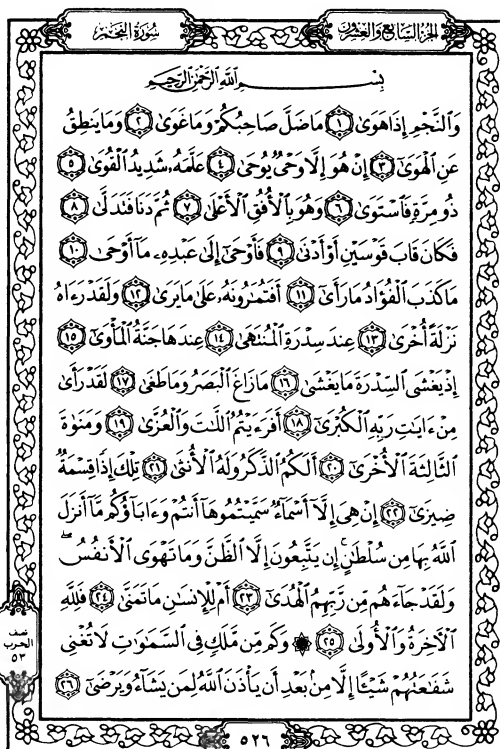 سُورَةُ النَّجْمِ
الجُزْءُ السَّابِعُ وَالعِشْرُونَ
بِسْمِ اللَّهِ الرَّحْمَٰنِ الرَّحِيمِ
وَٱلنَّجْمِ إِذَا هَوَىٰ ١ مَا ضَلَّ صَاحِبُكُمْ وَمَا غَوَىٰ ٢ وَمَا يَنطِقُ
عَنِ ٱلْهَوَىٰٓ ٣ إِنْ هُوَ إِلَّا وَحْىٌ يُوحَىٰ ٤ عَلَّمَهُۥ شَدِيدُ ٱلْقُوَىٰ ٥
ذُو مِرَّةٍ فَٱسْتَوَىٰ ٦ وَهُوَ بِٱلْأُفُقِ ٱلْأَعْلَىٰ ٧ ثُمَّ دَنَا فَتَدَلَّىٰ ٨
فَكَانَ قَابَ قَوْسَيْنِ أَوْ أَدْنَىٰ ٩ فَأَوْحَىٰٓ إِلَىٰ عَبْدِهِۦ مَآ أَوْحَىٰ ١٠
مَا كَذَبَ ٱلْفُؤَادُ مَا رَأَىٰٓ ١١ أَفَتُمَٰرُونَهُۥ عَلَىٰ مَا يَرَىٰ ١٢ وَلَقَدْ رَءَاهُ
نَزْلَةً أُخْرَىٰ ١٣ عِندَ سِدْرَةِ ٱلْمُنتَهَىٰ ١٤ عِندَهَا جَنَّةُ ٱلْمَأْوَىٰٓ ١٥
إِذْ يَغْشَى ٱلسِّدْرَةَ مَا يَغْشَىٰ ١٦ مَا زَاغَ ٱلْبَصَرُ وَمَا طَغَىٰ ١٧ لَقَدْ رَأَىٰ
مِنْ ءَايَٰتِ رَبِّهِ ٱلْكُبْرَىٰٓ ١٨ أَفَرَءَيْتُمُ ٱللَّٰتَ وَٱلْعُزَّىٰ ١٩ وَمَنَوٰةَ
ٱلثَّالِثَةَ ٱلْأُخْرَىٰٓ ٢٠ أَلَكُمُ ٱلذَّكَرُ وَلَهُ ٱلْأُنثَىٰ ٢١ تِلْكَ إِذًا قِسْمَةٌ
ضِيزَىٰٓ ٢٢ إِنْ هِىَ إِلَّآ أَسْمَآءٌ سَمَّيْتُمُوهَآ أَنتُمْ وَءَابَآؤُكُم مَّآ أَنزَلَ
ٱللَّهُ بِهَا مِن سُلْطَٰنٍ ۚ إِن يَتَّبِعُونَ إِلَّا ٱلظَّنَّ وَمَا تَهْوَى ٱلْأَنفُسُ ۖ
وَلَقَدْ جَآءَهُم مِّن رَّبِّهِمُ ٱلْهُدَىٰٓ ٢٣ أَمْ لِلْإِنسَٰنِ مَا تَمَنَّىٰ ٢٤ فَلِلَّهِ
ٱلْءَاخِرَةُ وَٱلْأُولَىٰ ٢٥ ۞ وَكَم مِّن مَّلَكٍ فِى ٱلسَّمَٰوَٰتِ لَا تُغْنِى
شَفَٰعَتُهُمْ شَيْـًٔا إِلَّا مِنۢ بَعْدِ أَن يَأْذَنَ ٱللَّهُ لِمَن يَشَآءُ وَيَرْضَىٰٓ ٢٦
نصف
الحزب
٥٣
٥٢٦